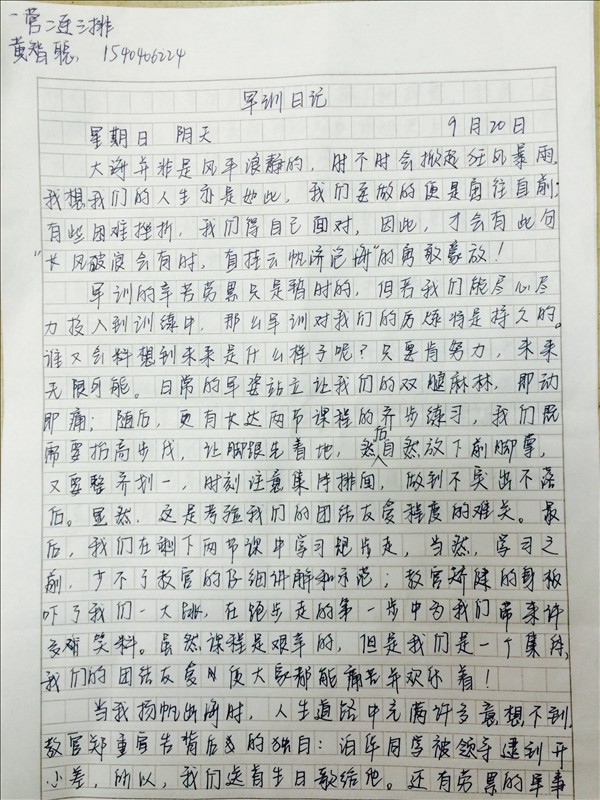 一营二连三排
黄智聪 1540406224
军训日记
星期日 阴天 9月20日
大海并非是风平浪静的，时不时会掀起狂风暴雨。
我想我们的人生亦是如此，我们要做的便是勇往直前；
有些困难挫折，我们得自己面对，因此，才会有此句
“长风破浪会有时，直挂云帆济沧海”的勇敢豪放！
军训的辛苦劳累只是暂时的，但若我们能尽心尽
力投入到训练中，那么军训对我们的历炼将是持久的。
谁又会料想到未来是什么样子呢？只要肯努力，未来
无限可能。日常的军姿站立让我们的双腿麻林，即动
即痛；随后，更有长达两节课程的齐步练习，我们既
需要抬高步伐，让脚跟先着地，然后自然放下前脚掌，
又要整齐划一，时刻注意集体排面，做到不突出不落
后。显然，这是考验我们的团结友爱程度的难关。最
后，我们在剩下两节课中学习跑步走，当然，学习之
前，少不了教官的仔细讲解和示范；教官矫健的身板
吓了我们一大跳，在跑步走的第一步中为我们带来许
多欢笑料。虽然课程是艰辛的，但是我们是一个集体，
我们的团结友爱使大家都能痛苦并欢乐着！
当我扬帆出海时，人生道路中充满许多意想不到，
教官郑重宣告背后的独白：泊华同学被领导逮到开
小差，所以，我们送首生日歌给他。还有劳累的军事